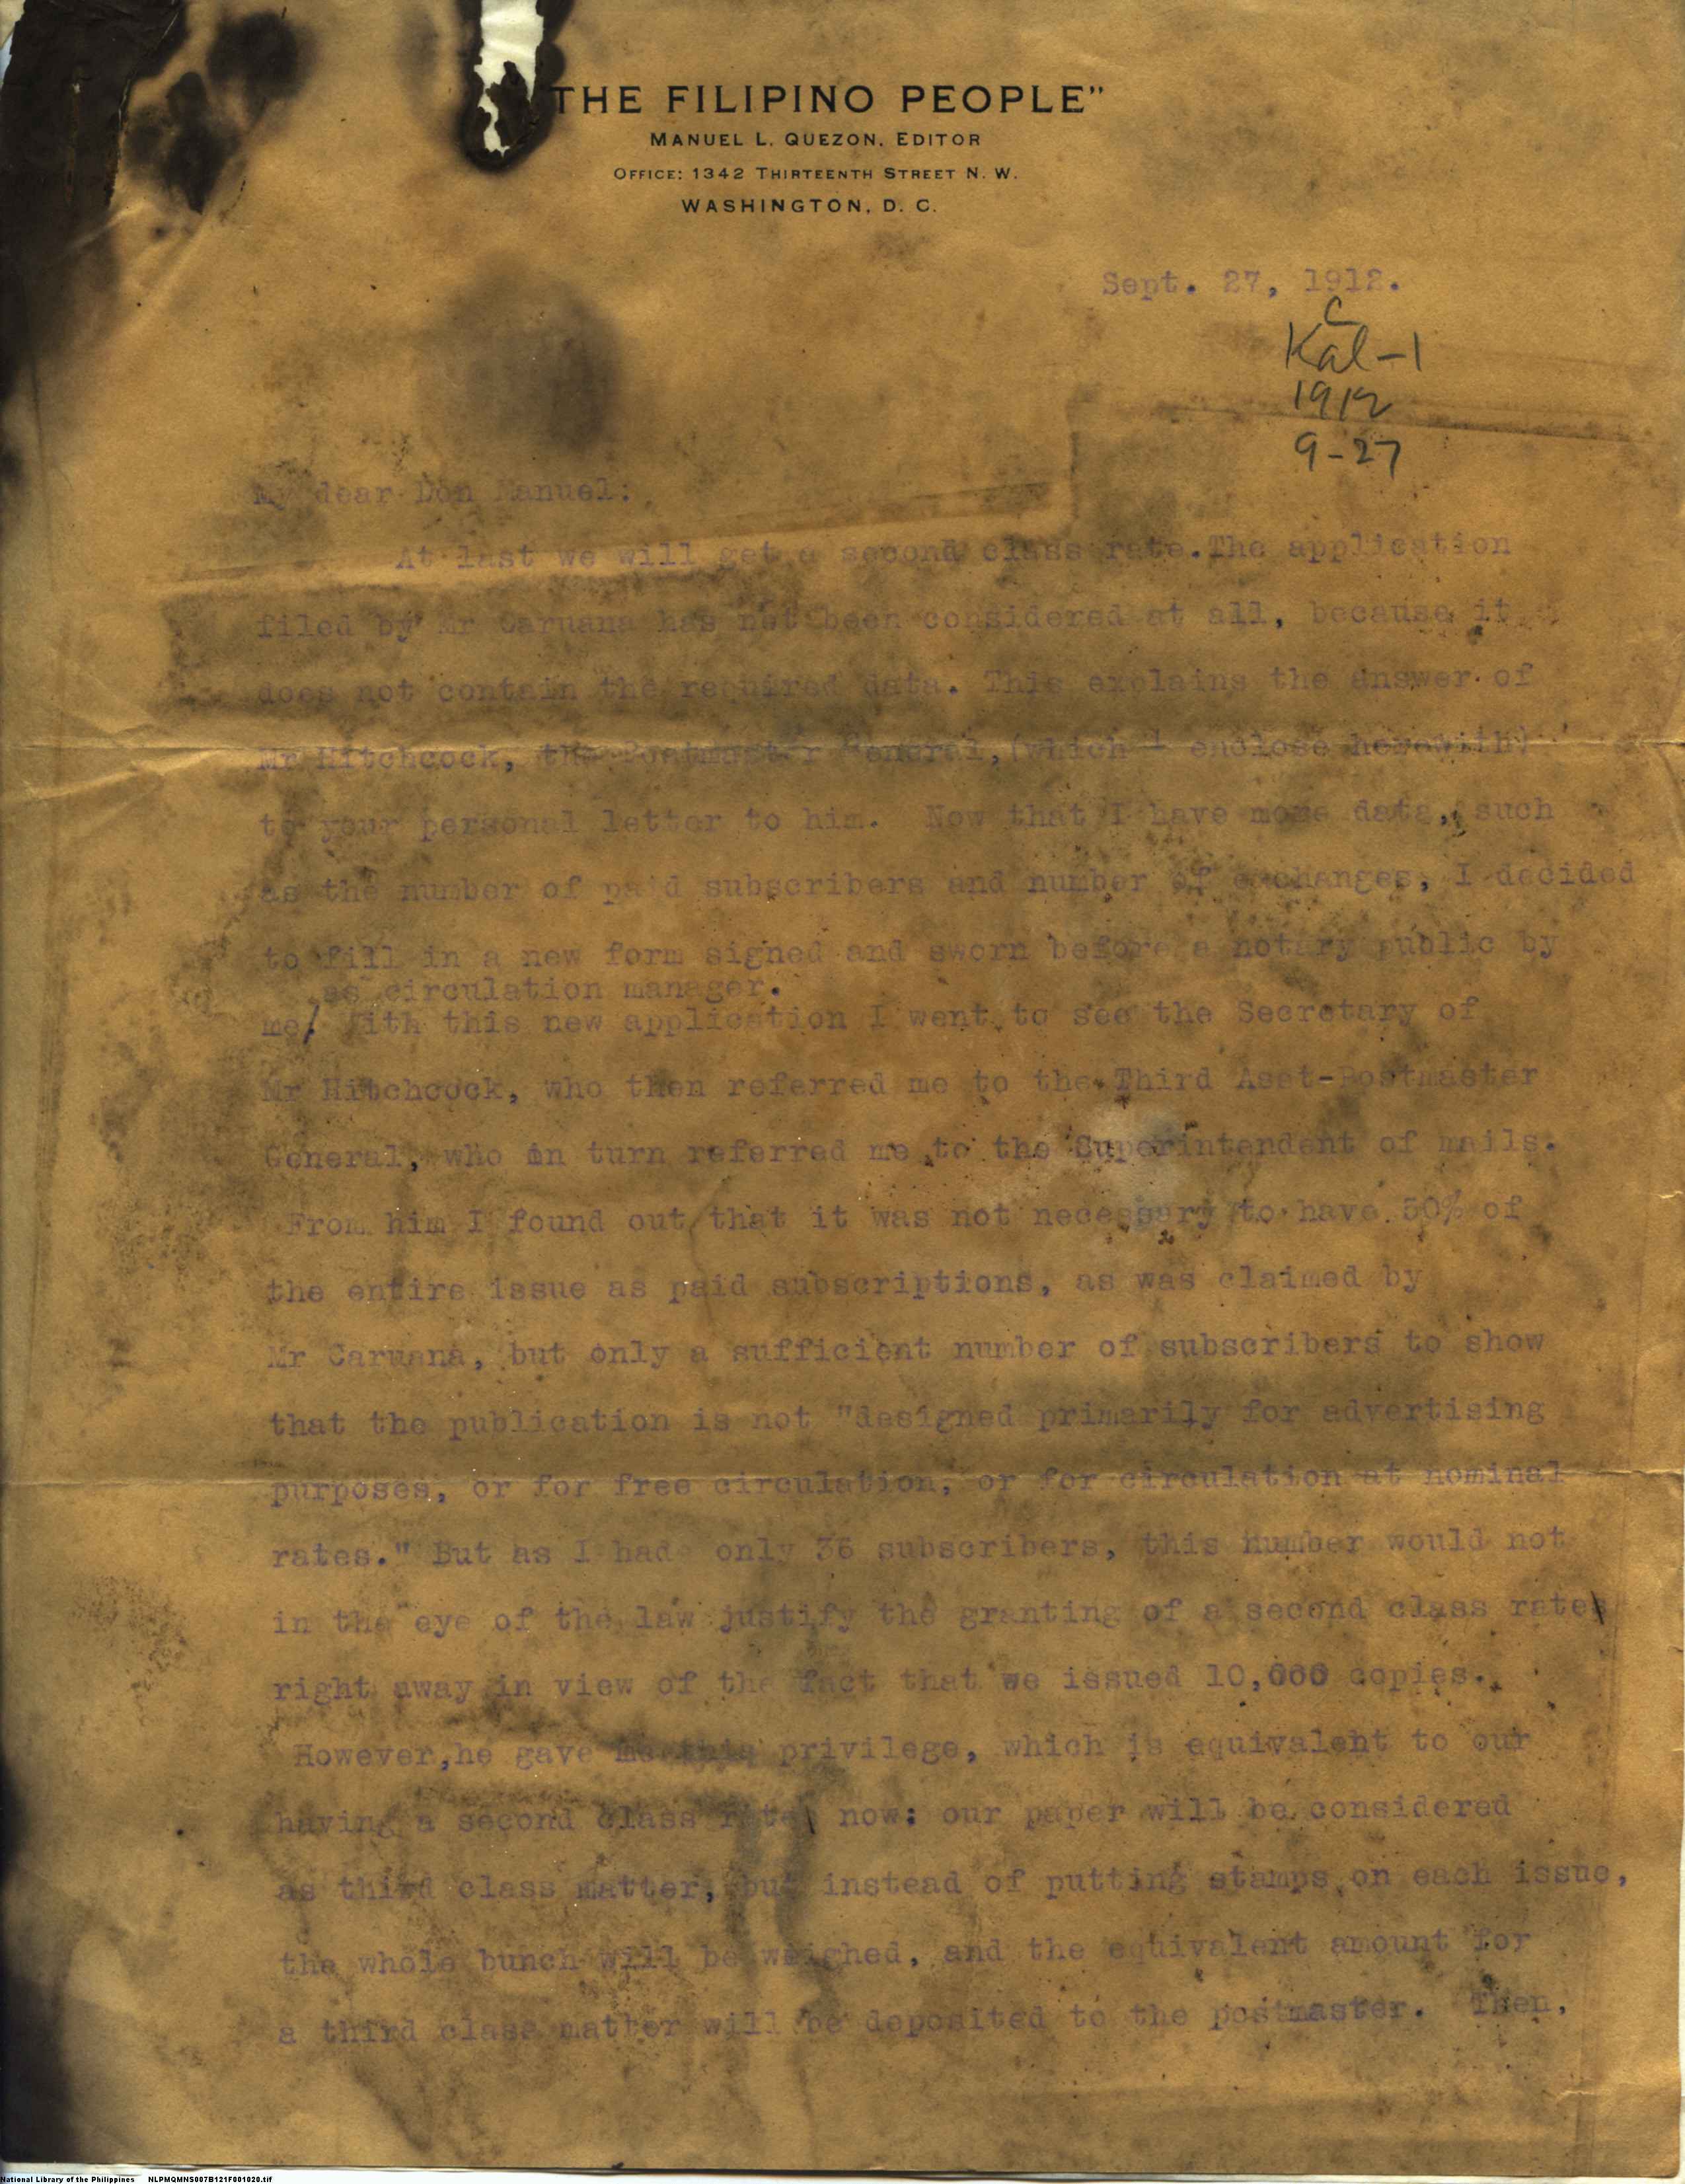 THE FILIPINO PEOPLE"
MANUEL L. QUEZON, EDITOR
OFFICE: 1342 THIRTEENTH STREET N. W.
WASHINGTON, D. C.
Sept. 27, 1912.
C
Kal-1
1912
9-27
My dear Don Manuel:
At last we will get a second class rate.The application
filed by Mr Caruana has not been considered at all, because it
does not contain the required data. This explains the answer of
Mr Hitchcock, the Postmaster General,(which I enclose herewith)
to your personal letter to him. Now that I have more data, such
as the number of paid subscribers and number of exchanges, I decided
to fill in a new form signed and sworn before a notary public by
as circulation manager.
me/ With this new application I went to see the Secretary of
Mr Hitchcock, who then referred me to the Third Asst-Postmaster
General, who in turn referred me to the Superintendent of mails.
From him I found out that it was not necessary to have 50% of
the entire issue as paid subscriptions, as was claimed by
Mr Caruana, but only a sufficient number of subscribers to show
that the publication is not "designed primarily for advertising
purposes, or for free circulation, or for circulation at nominal
rates." But as I had only 36 subscribers, this number would not
in the eye of the law justify the granting of a second class rate
right away in view of the fact that we issued 10,000 copies.
However,he gave me this privilege, which is equivalent to our
having a second class rate now: our paper will be considered
as third class matter, but instead of putting stamps on each issue,
the whole bunch will be weighed, and the equivalent amount for
a third class matter will be deposited to the postmaster. Then,
National Library of the Philippines NLPMQMNS007B121F001020.tif